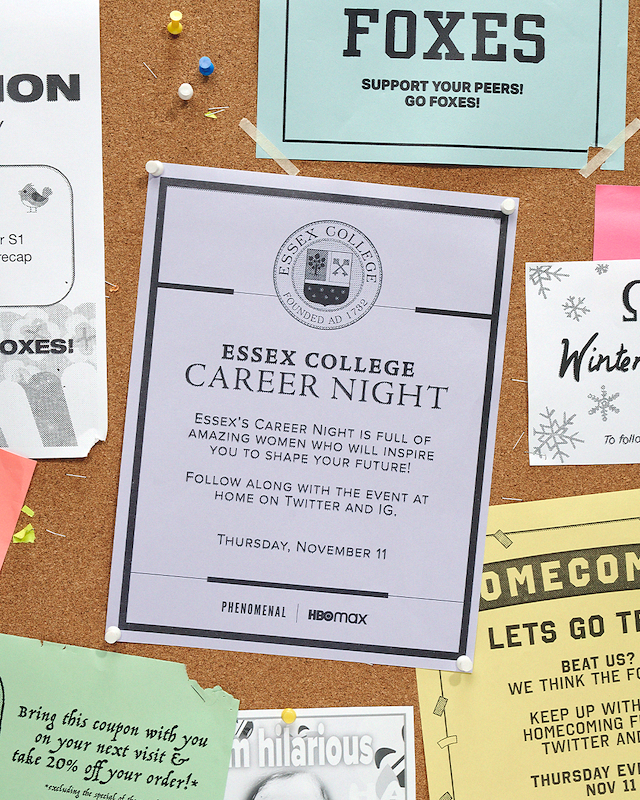 FOXES
SUPPORT YOUR PEERS!
GO FOXES!
ION
Y
r S1
recap
OXES!
ESSEX COLLEGE
FOUNDED AD 1792
ESSEX COLLEGE
CAREER NIGHT
ESSEX'S CAREER NIGHT IS FULL OF
AMAZING WOMEN WHO WILL INSPIRE
YOU TO SHAPE YOUR FUTURE!
FOLLOW ALONG WITH THE EVENT AT
HOME ON TWITTER AND IG.
THURSDAY, NOVEMBER 11
PHENOMENAL | HBOmax
Ω
Winter
To follo
OMECOM
LETS GO T
BEAT US?
WE THINK THE FO
KEEP UP WITH
HOMECOMING F
TWITTER AN
THURSDAY EV
NOV 11
Bring this coupon with you
on your next visit &
take 20% off your order!*
*excluding the special of
m hilarious